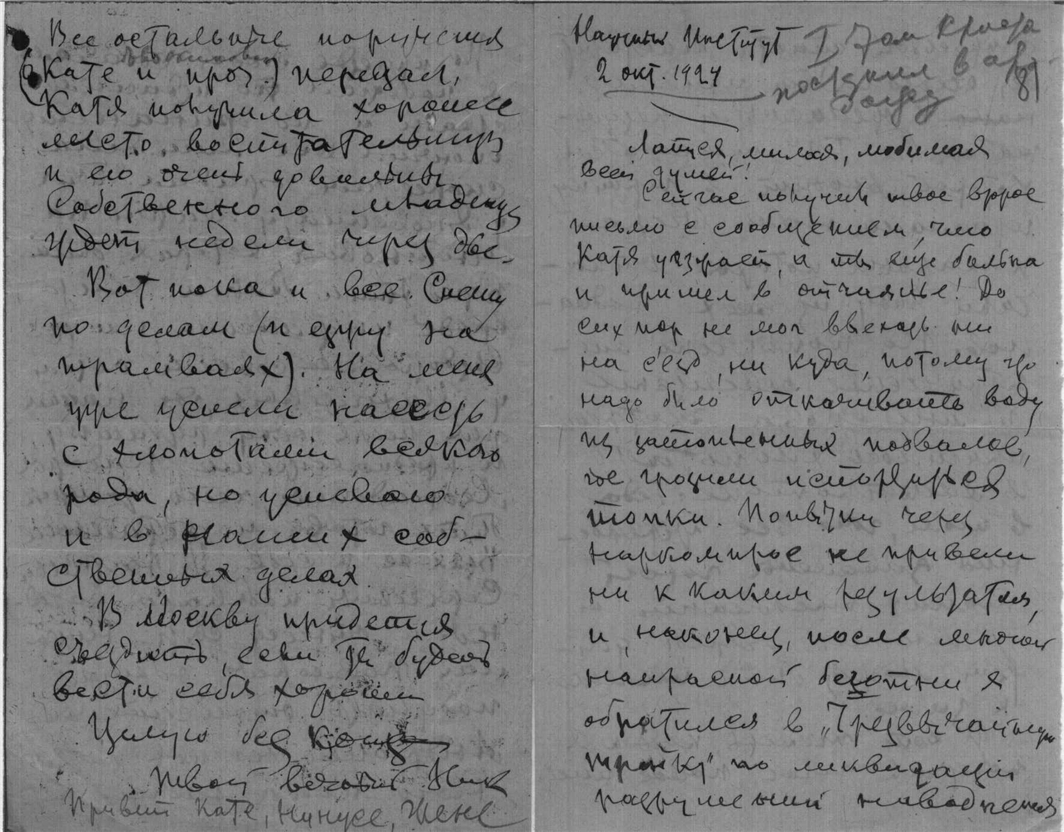 Все остальные поручения
(Кате и проч.) передал,
Катя получила хорошее
место воспитательницы
и его очень довольны
Собственного младенца
ждет недели через две.
Вот пока и все. Спешу
по делам (и езжу на
трамваях). На меня
уже успели насесть
с хлопотами всякого
рода, но успеваю
и в наших соб-
ственных делах
В Москву придется
съездить, если ты будешь
вести себя хорошо
Целую без конца
Твой Ник
Привет Кате, Нинусе, Жене
Научный Институт
2 окт. 1924
I том
81
милая, любимая
всей душей!
Сейчас получил твое второе
письмо с сообщением, что
Катя уезжает, а ты еще больна
и пришел в отчаянье! До
сих пор не мог выехать ни
на съезд, ни куда, потому что
надо было откачивать воду
из затопленных подвалов,
где грозили испортиться
топки. Попытки через
наркомпрос не привели
ни к каким результатам,
и, наконец, после многой
напрасной беготни я
обратился в „Чрезвычайную
тройку" по ликвидации
разрушений наводнения